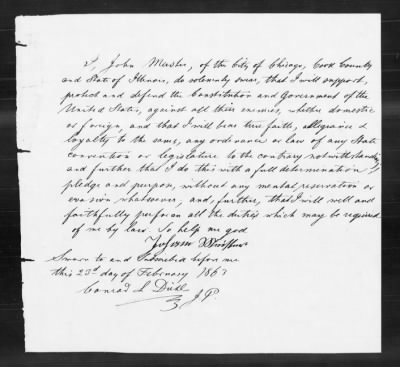 I, John Mueller, of the City of Chicago, Cook County
and State of Illinois, do solemnly swear, that I will support,
protect and defend the Constitution and Government of the
United States, against all their enemies, whether domestic
or foreign, and that I will bear true faith, allegiance &
loyalty to the same, any ordinance or law of any State
convention or legislature to the contrary notwithstanding,
and further that I do this with a full determination
pledge and purpose, without any mental reservation or
evasion whatsoever, and, further, that I will well and
faithfully perform all the duties which may be required
of me by law. So help me god
Johann
Sworn to and Subscribed before me
this 23d day of February 1863
Conrad L Diehl
J.P.